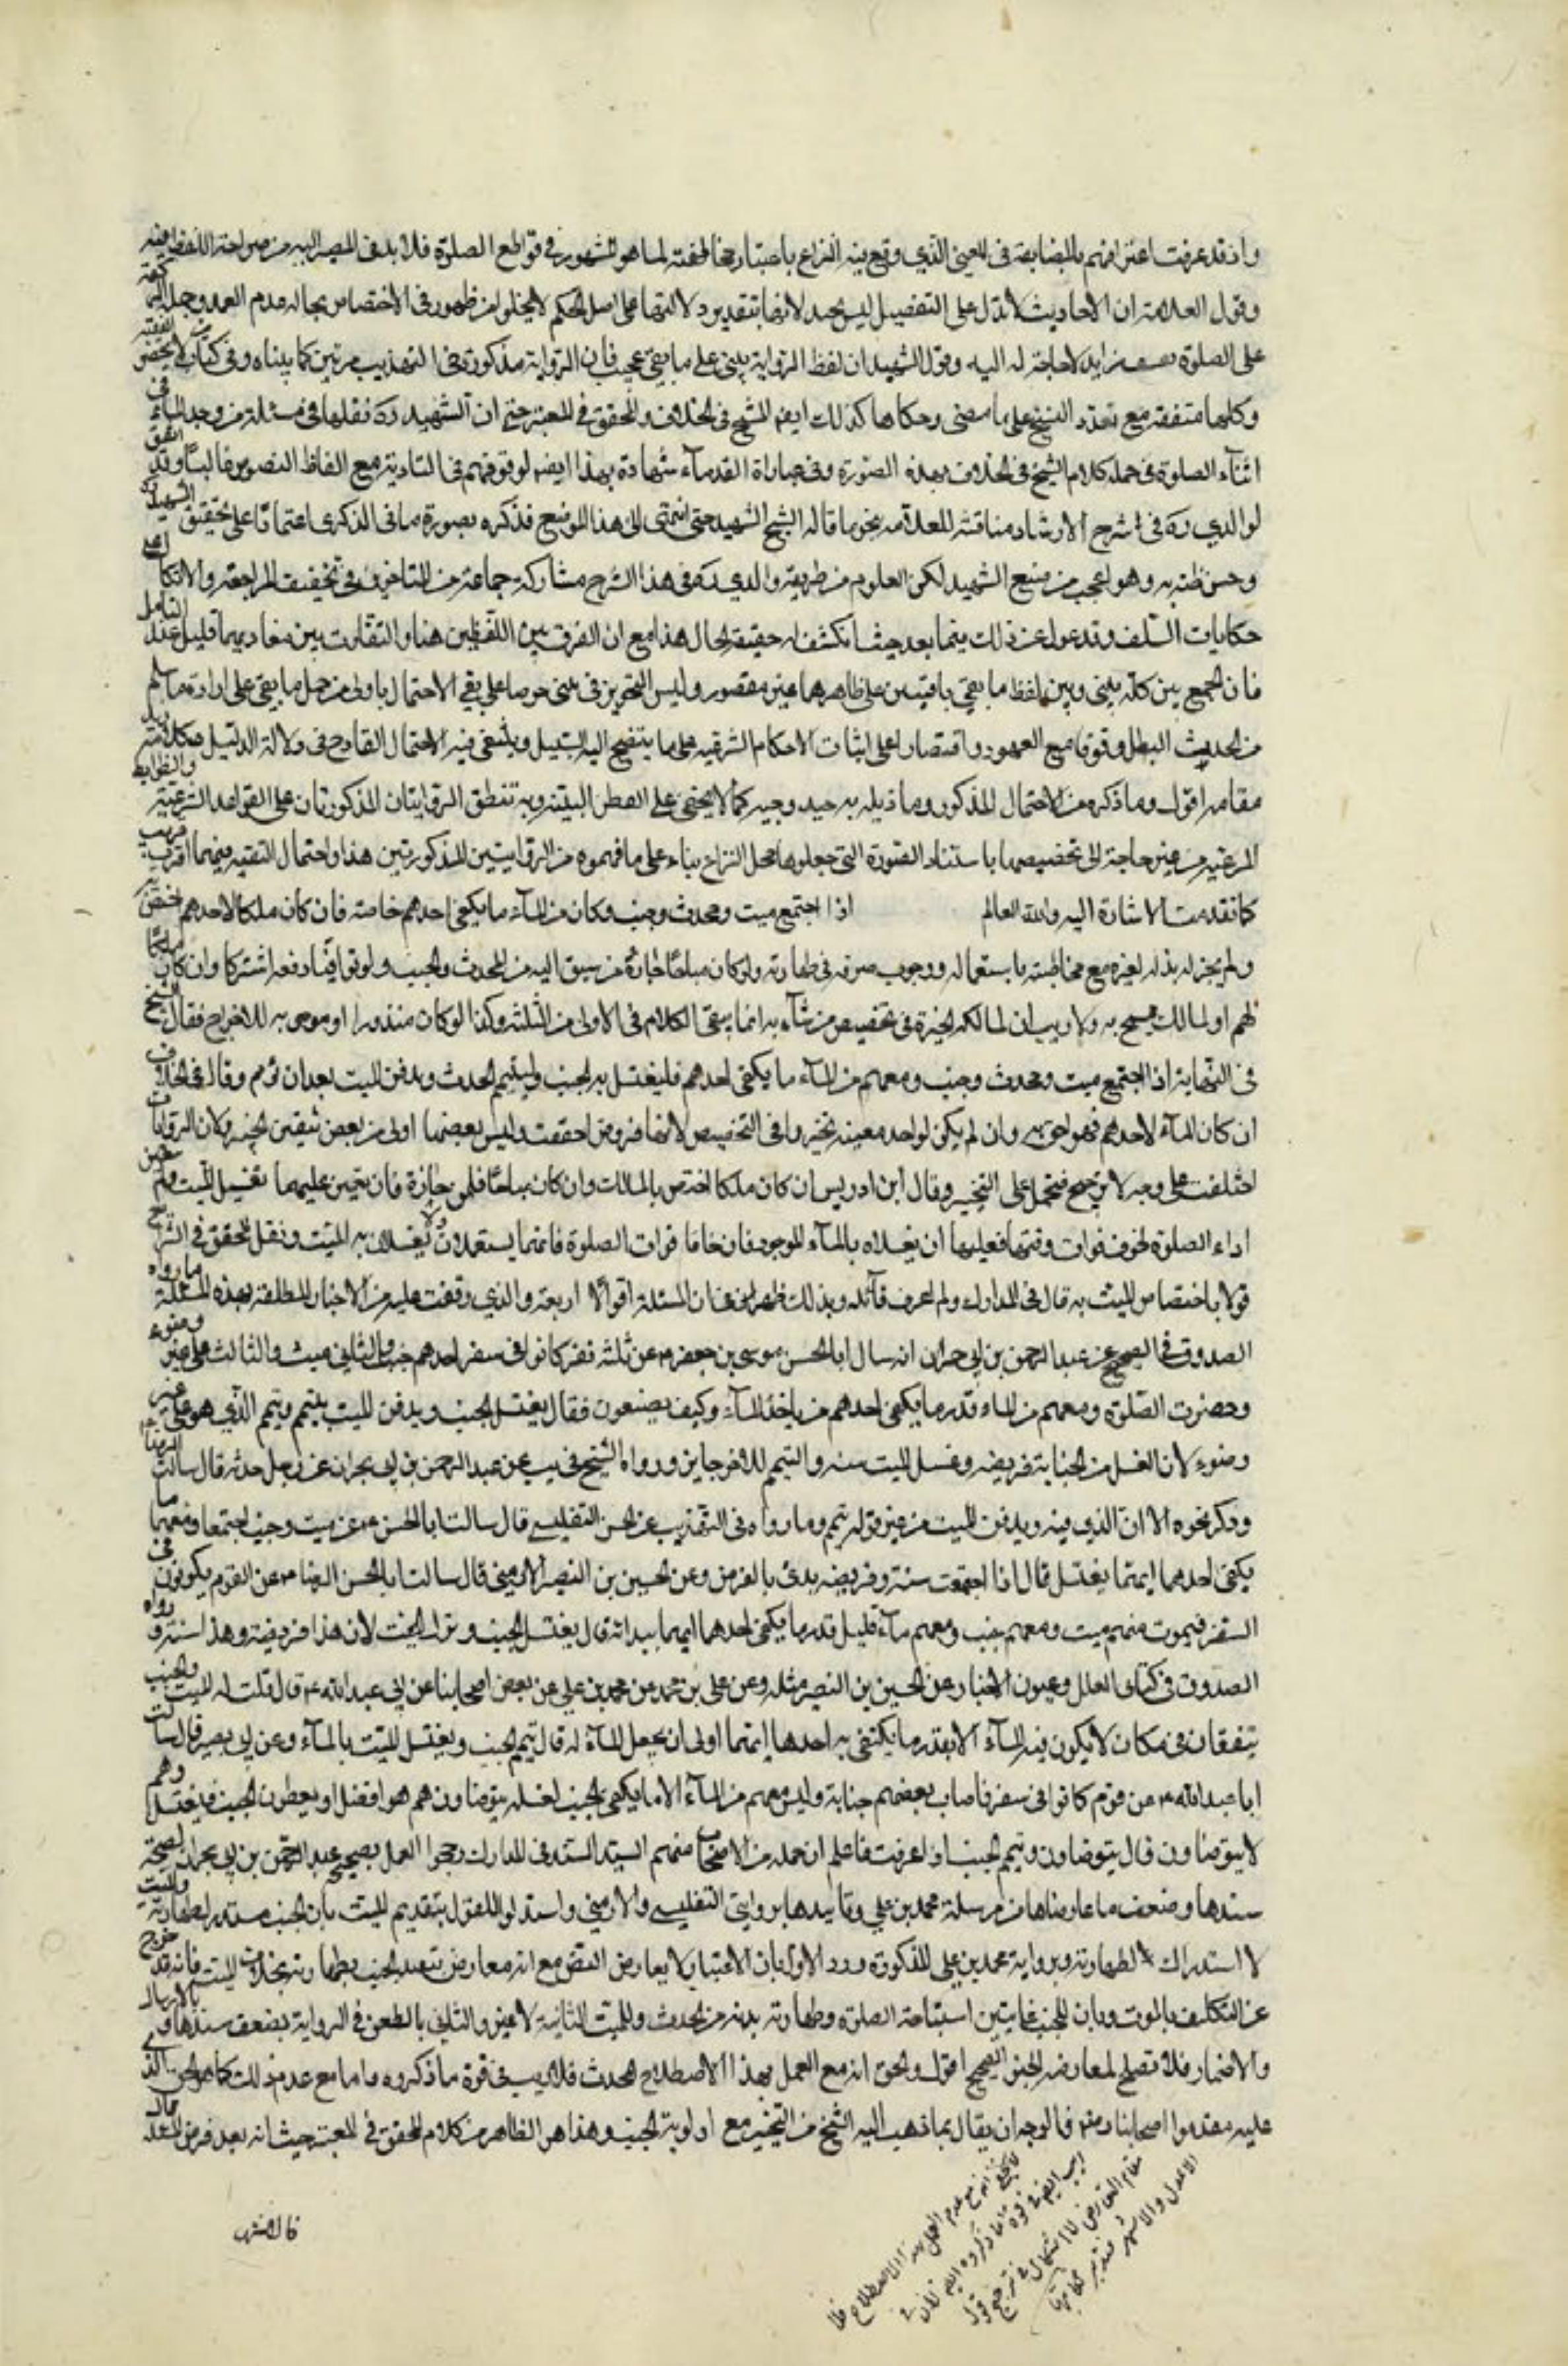 واذ قد عرفت اعترافهم بالمضايقة في المعنى الذي وقع فيه النزاع باعتبار مخالفته لما هو المشهور في قواطع الصلوة فلا بد في المصير اليه من صراحة اللفظ فيه
وقول العلامة ان الاحاديث لا تدل على التفصيل ليس بجيد لانها بتقدير دلالتها على اصل الحكم لا يخلو من ظهور في الاختصاص بحالة عدم العمد وحملها
على الصلوة تعسف زايد لا حاجة له اليه وقول الشهيد ان لفظ الرواية يبني على ما بقي عجيب فان الرواية مذكورة في التهذيب مرتين كما بيناه وفي كتاب من لا يحضره الفقيه
وكلها متفقة مع تعدد النسخ على ما مضى وحكاها كذلك ايضا الشيخ في الخلاف والمحقق في المعتبر حتى ان الشهيد ره نقلها في مسئلة من وجد الماء في
اثناء الصلوة في جملة كلام الشيخ في الخلاف بهذه الصورة وفي عبارات القدماء شهادة بهذا ايضا لوقوفهم في التادية مع الفاظ النصوص غالبا وقد اتفق
لوالدي ره في شرح الارشاد مناقشة للعلامة بنحو ما قاله الشيخ الشهيد حتى انتهى الى هذا الموضع فذكره بصورة ما في الذكرى اعتمادا على تحقيق الشهيد
وحسن ظنه به وهو اعجب من صنيع الشهيد لكن المعلوم من طريقة والدي ره في هذا الشرح مشاركة جماعة من المتاخرين في تخفيف المراجعة والاتكال على
حكايات السلف وقد عدل عن ذلك فيما بعد حيث انكشف له حقيقة الحال هذا مع ان الفرق بين اللفظين هنا والتفاوت بين مفاديهما قليل عند التامل
فان الجمع بين كلمة يبني وبين لفظ ما بقي باقيتين على ظاهرهما غير مقصور وليس التجويز في يبني حرصا على بقي الاحتمال باولى من حمل ما بقي على ارادة ما سلم
من الحديث المبطل وقوفا مع المعهود واقتصارا على اثبات الاحكام الشرعية على ما يتضح اليه السبيل وينتفي فيه الاحتمال القادح في دلالة الدليل
مقامه اقول وما ذكره من الاحتمال المذكور وما ذيله به جيد وجيه كما لا يخفى على الفطن النبيه وبه تنطبق الروايتان المذكورتان على القواعد الشرعية والضوابط
المرعية من غير حاجة الى تخصيصها باستثناء الصورة التي جعلوها محل النزاع بناء على ما فهموه من الروايتين المذكورتين هذا واحتمال التقية فيهما اقرب قريب
كما تقدمت الاشارة اليه والله العالم اذا اجتمع ميت ومحدث وجنب وكان من الماء ما يكفي احدهم خاصة فان كان ملكا لاحدهم اختص به
ولم يجز له بذله لغيره مع مخاطبته باستعماله ووجوب صرفه في طهارته ولو كان مباحا حازه من سبق اليه من المحدث والجنب ولو توافيا دفعة اشتركا وان كان ملكا
لهم او لمالك يسمح به ولا ريب ان لمالكه الخيرة في تخصيص من شاء به انما يبقى الكلام في الاولى من الثلثة وكذا لو كان منذورا او موصى به للاحوج فقال الشيخ
في النهاية اذا اجتمع ميت ومحدث وجنب ومعهم من الماء ما يكفي احدهم فليغتسل به الجنب وليتيمم المحدث ويدفن الميت بعد ان يؤمم وقال في الخلاف
ان كان الماء لاحدهم فهو احق به وان لم يكن لواحد معينه تخيروا في التخصيص لانها فروض اجتمعت وليس بعضها اولى من بعض فتعين التخيير ولان الروايات
اختلفت على وجه لا ترجيح فتحمل على التخيير وقال ابن ادريس ان كان ملكا اختص بالمالك وان كان مباحا فلمن حازه فان تعين عليهما تغسيل الميت ولم يتعين
اداء الصلوة لخوف فوات وقتها فعليهما ان يغسلاه بالماء الموجود فان خافا فوات الصلوة فانهما يستعملانه ولا يغسلان به الميت ونقل المحقق في الشرايع
قولا باختصاص الميت به قال في المدارك ولم اعرف قائله وبذلك ظهر ان في المسئلة اقوالا اربعة والذي وقفت عليه من الاخبار المتعلقة بهذه المسئلة ما رواه
الصدوق في الصحيح عن عبد الرحمن بن ابي نجران انه سال ابا الحسن موسى بن جعفر ع عن ثلثة نفر كانوا في سفر احدهم جنب والثاني ميت والثالث على غير وضوء
وحضرت الصلوة ومعهم من الماء قدر ما يكفي احدهم من ياخذ الماء وكيف يصنعون فقال يغتسل الجنب ويدفن الميت بتيمم ويتيمم الذي هو على غير
وضوء لان الغسل من الجنابة فريضة وغسل الميت سنة والتيمم للاخر جايز ورواه الشيخ في يب عن عبد الرحمن بن ابي نجران عن رجل حدثه قال سالت الرضا ع
وذكر نحوه الا ان الذي فيه ويدفن الميت من غير قوله بتيمم وما رواه في التهذيب عن الحسن التفليسي قال سالت ابا الحسن ع عن ميت وجنب اجتمعا ومعهما ما
يكفي احدهما ايهما يغتسل قال اذا اجتمعت سنة وفريضة بدئ بالفرض وعن الحسين بن النضر الارمني قال سالت ابا الحسن الرضا ع عن القوم يكونون في
السفر فيموت منهم ميت ومعهم جنب ومعهم ماء قليل قدر ما يكفي احدهما ايهما يبدا به قال يغتسل الجنب ويترك الميت لان هذا فريضة وهذا سنة ورواه
الصدوق في كتاب العلل وعيون الاخبار عن الحسين بن النضر مثله وعن علي بن محمد عن محمد بن علي عن بعض اصحابنا عن ابي عبد الله ع قال قلت له الميت والجنب
يتفقان في مكان لا يكون فيه الماء الا بقدر ما يكتفي به احدهما ايهما اولى ان يجعل الماء له قال يتيمم الجنب ويغتسل الميت بالماء وعن ابي بصير قال سالت
ابا عبد الله ع عن قوم كانوا في سفر فاصاب بعضهم جنابة وليس معهم من الماء الا ما يكفي الجنب لغسله يتوضاون هم هو افضل او يعطون الجنب فيغتسل وهم
لا يتوضاون قال يتوضاون ويتيمم الجنب اذا عرفت فاعلم ان جملة من الاصحاب منهم السيد السند في المدارك رجحوا العمل بصحيح عبد الرحمن بن ابي نجران لصحة
سندها وضعف ما عارضها من مرسلة محمد بن علي وتاييدها بروايتي التفليسي والارمني واستدلوا للقول بتقديم الميت بان الجنب مستدرك لطهارته والميت
لا استدراك لطهارته وبرواية محمد بن علي المذكورة ورد الاول بان الاعتبار لا يعارض النص مع انه معارض بتعبد الجنب بطهارته بخلاف الميت فانه قد خرج
عن التكليف بالموت وبان للجنب غايتين استباحة الصلوة وطهارة بدنه من الحدث وللميت الثانية لا غير والثاني بالطعن في الرواية بضعف سندها بالارسال
والاضمار فلا تصلح لمعارضة الخبر الصحيح اقول والحق انه مع العمل بهذا الاصطلاح المحدث فلا ريب في قوة ما ذكروه واما مع عدم ذلك كما هو الحق الذي
عليه متقدموا اصحابنا رض فالوجه ان يقال بما ذهب اليه الشيخ من التخيير مع اولوية الجنب وهذا هو الظاهر من كلام المحقق في المعتبر حيث انه بعد فرض المسئلة قال
فالمشهور
لا يخفى انه مع عدم العمل بهذا الاصطلاح فلا
ريب ايضا في قوة ما ذكروه ايضا لان في
مقام التعارض لا اشكال في ترجيح قول
الاعدل والاشهر فتدبر